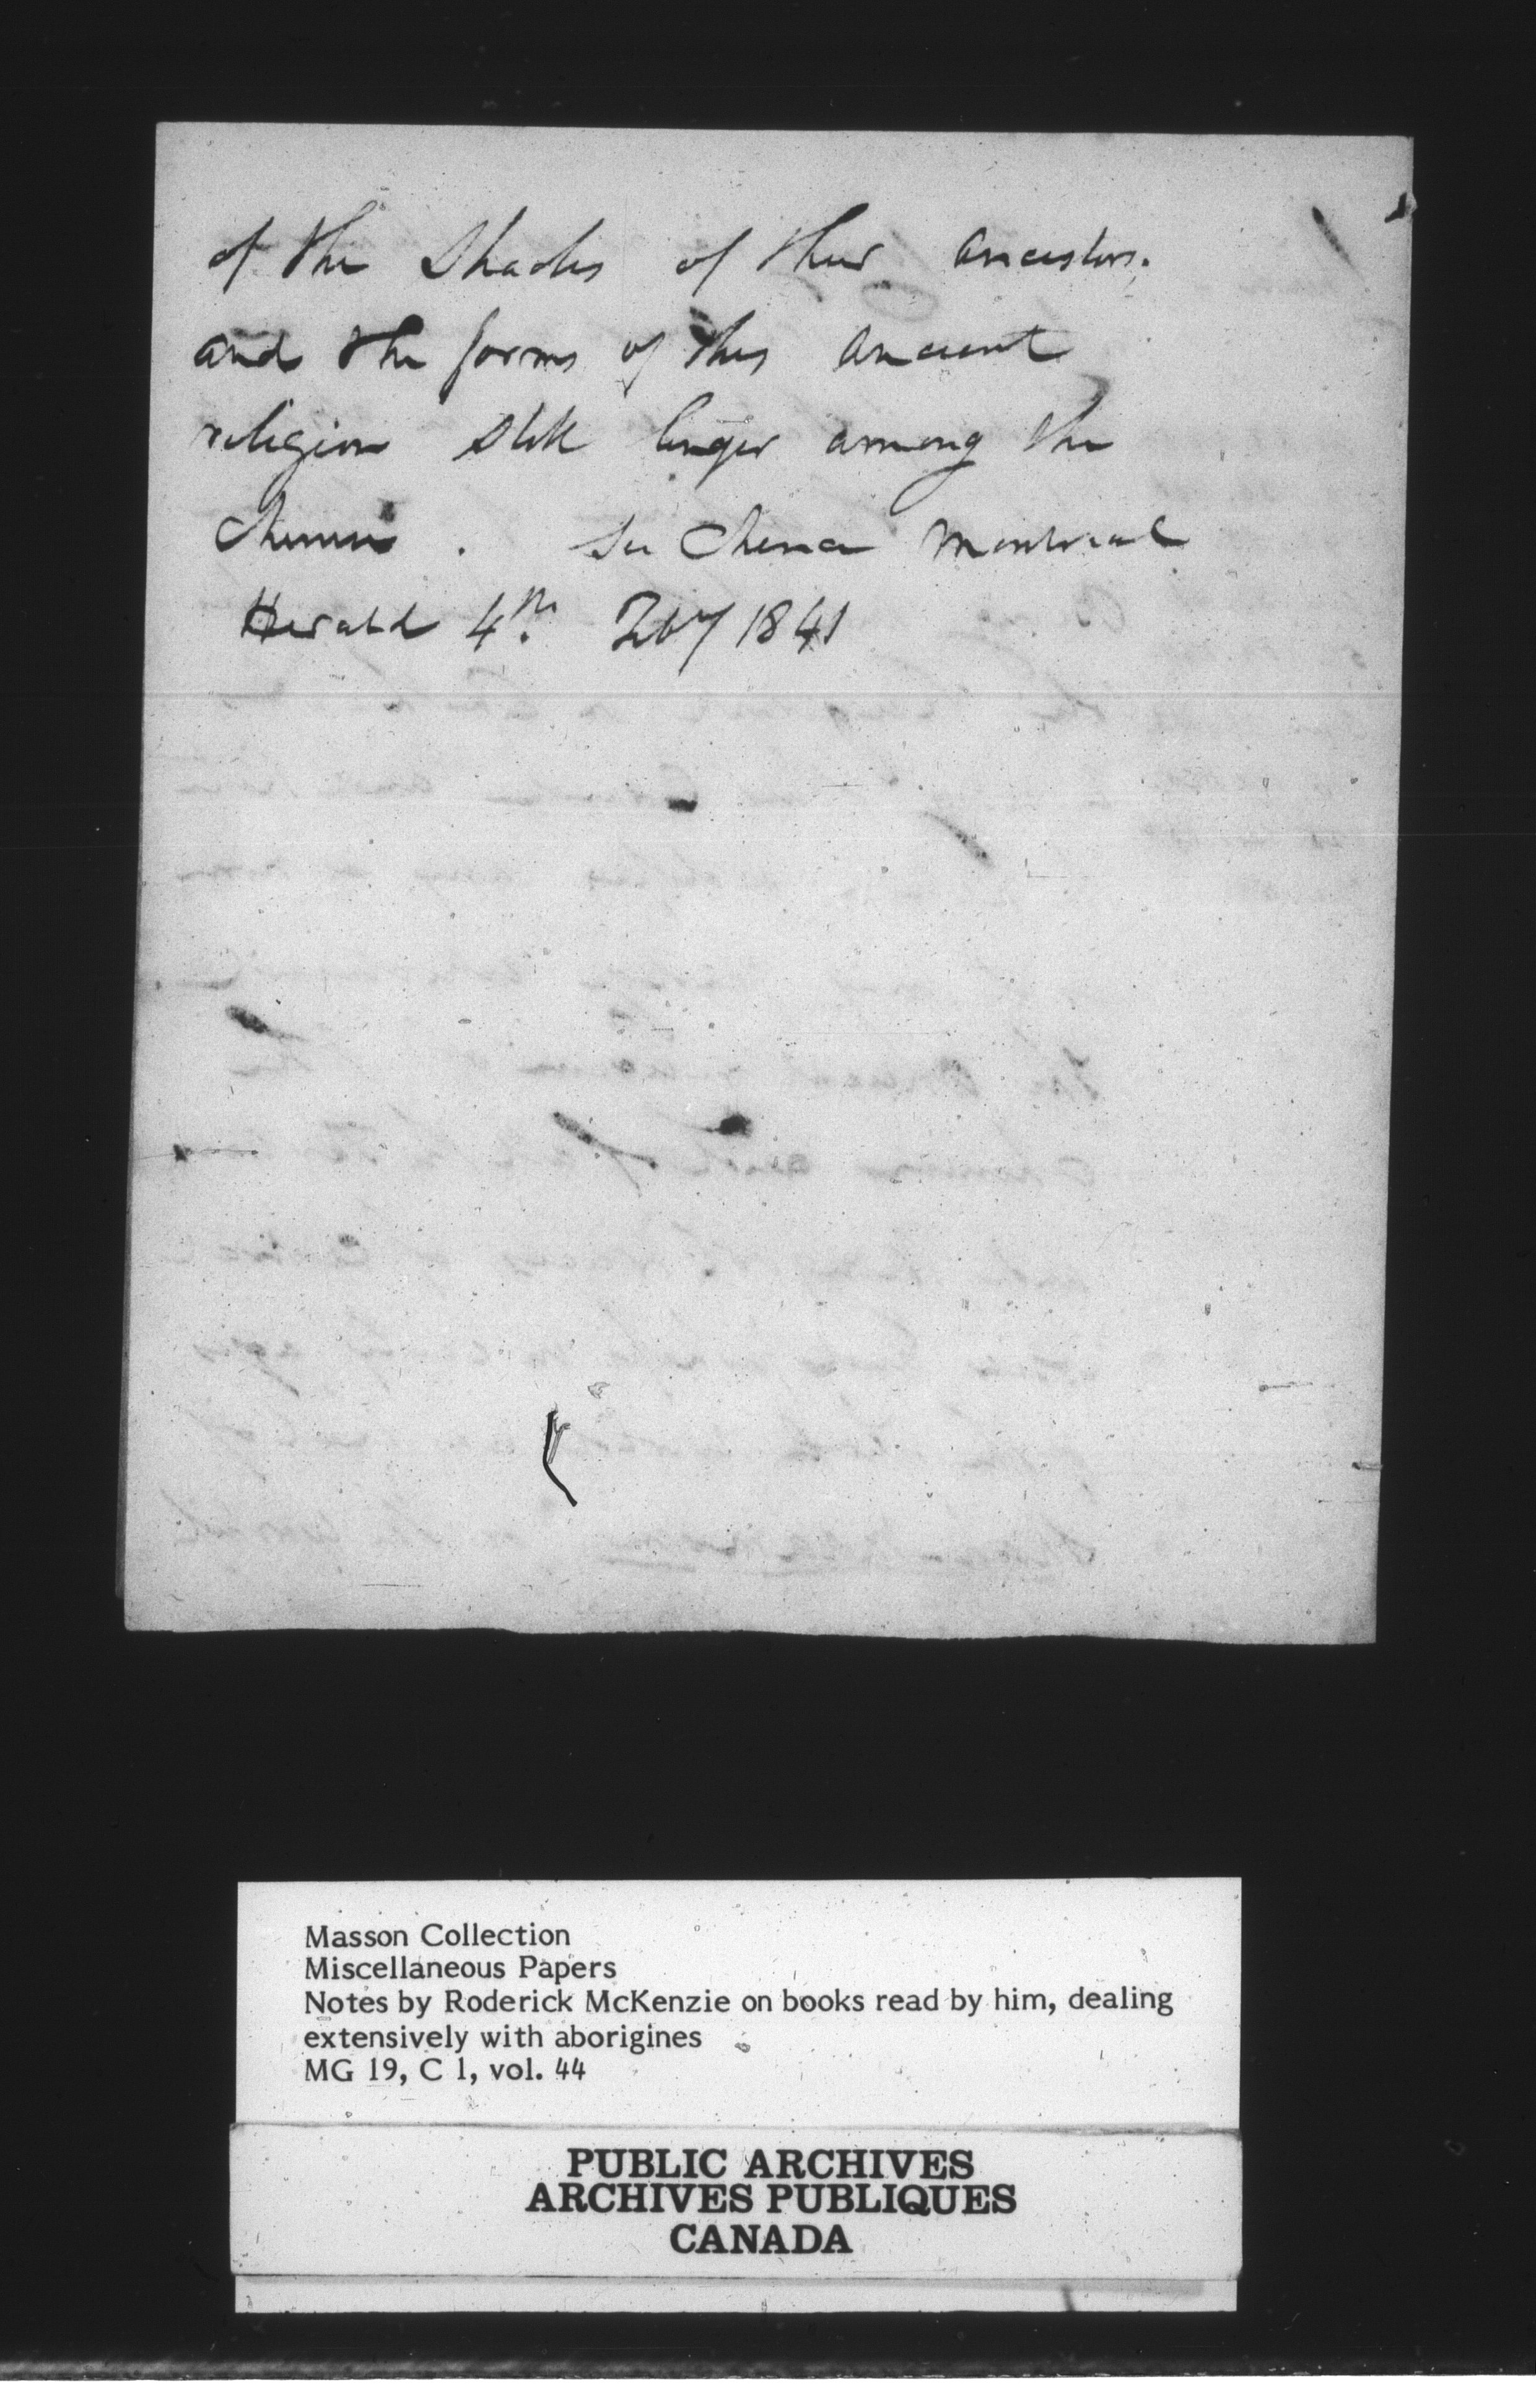 of the Shades of their ancestors.
and the forms of this ancient
religion still linger among the
Chinese . See China Montreal
Herald 4th. Feby 1841
Masson Collection
Miscellaneous Papers
Notes by Roderick McKenzie on books read by him, dealing
extensively with aborigines
MG 19, C 1, vol. 44
PUBLIC ARCHIVES
ARCHIVES PUBLIQUES
CANADA